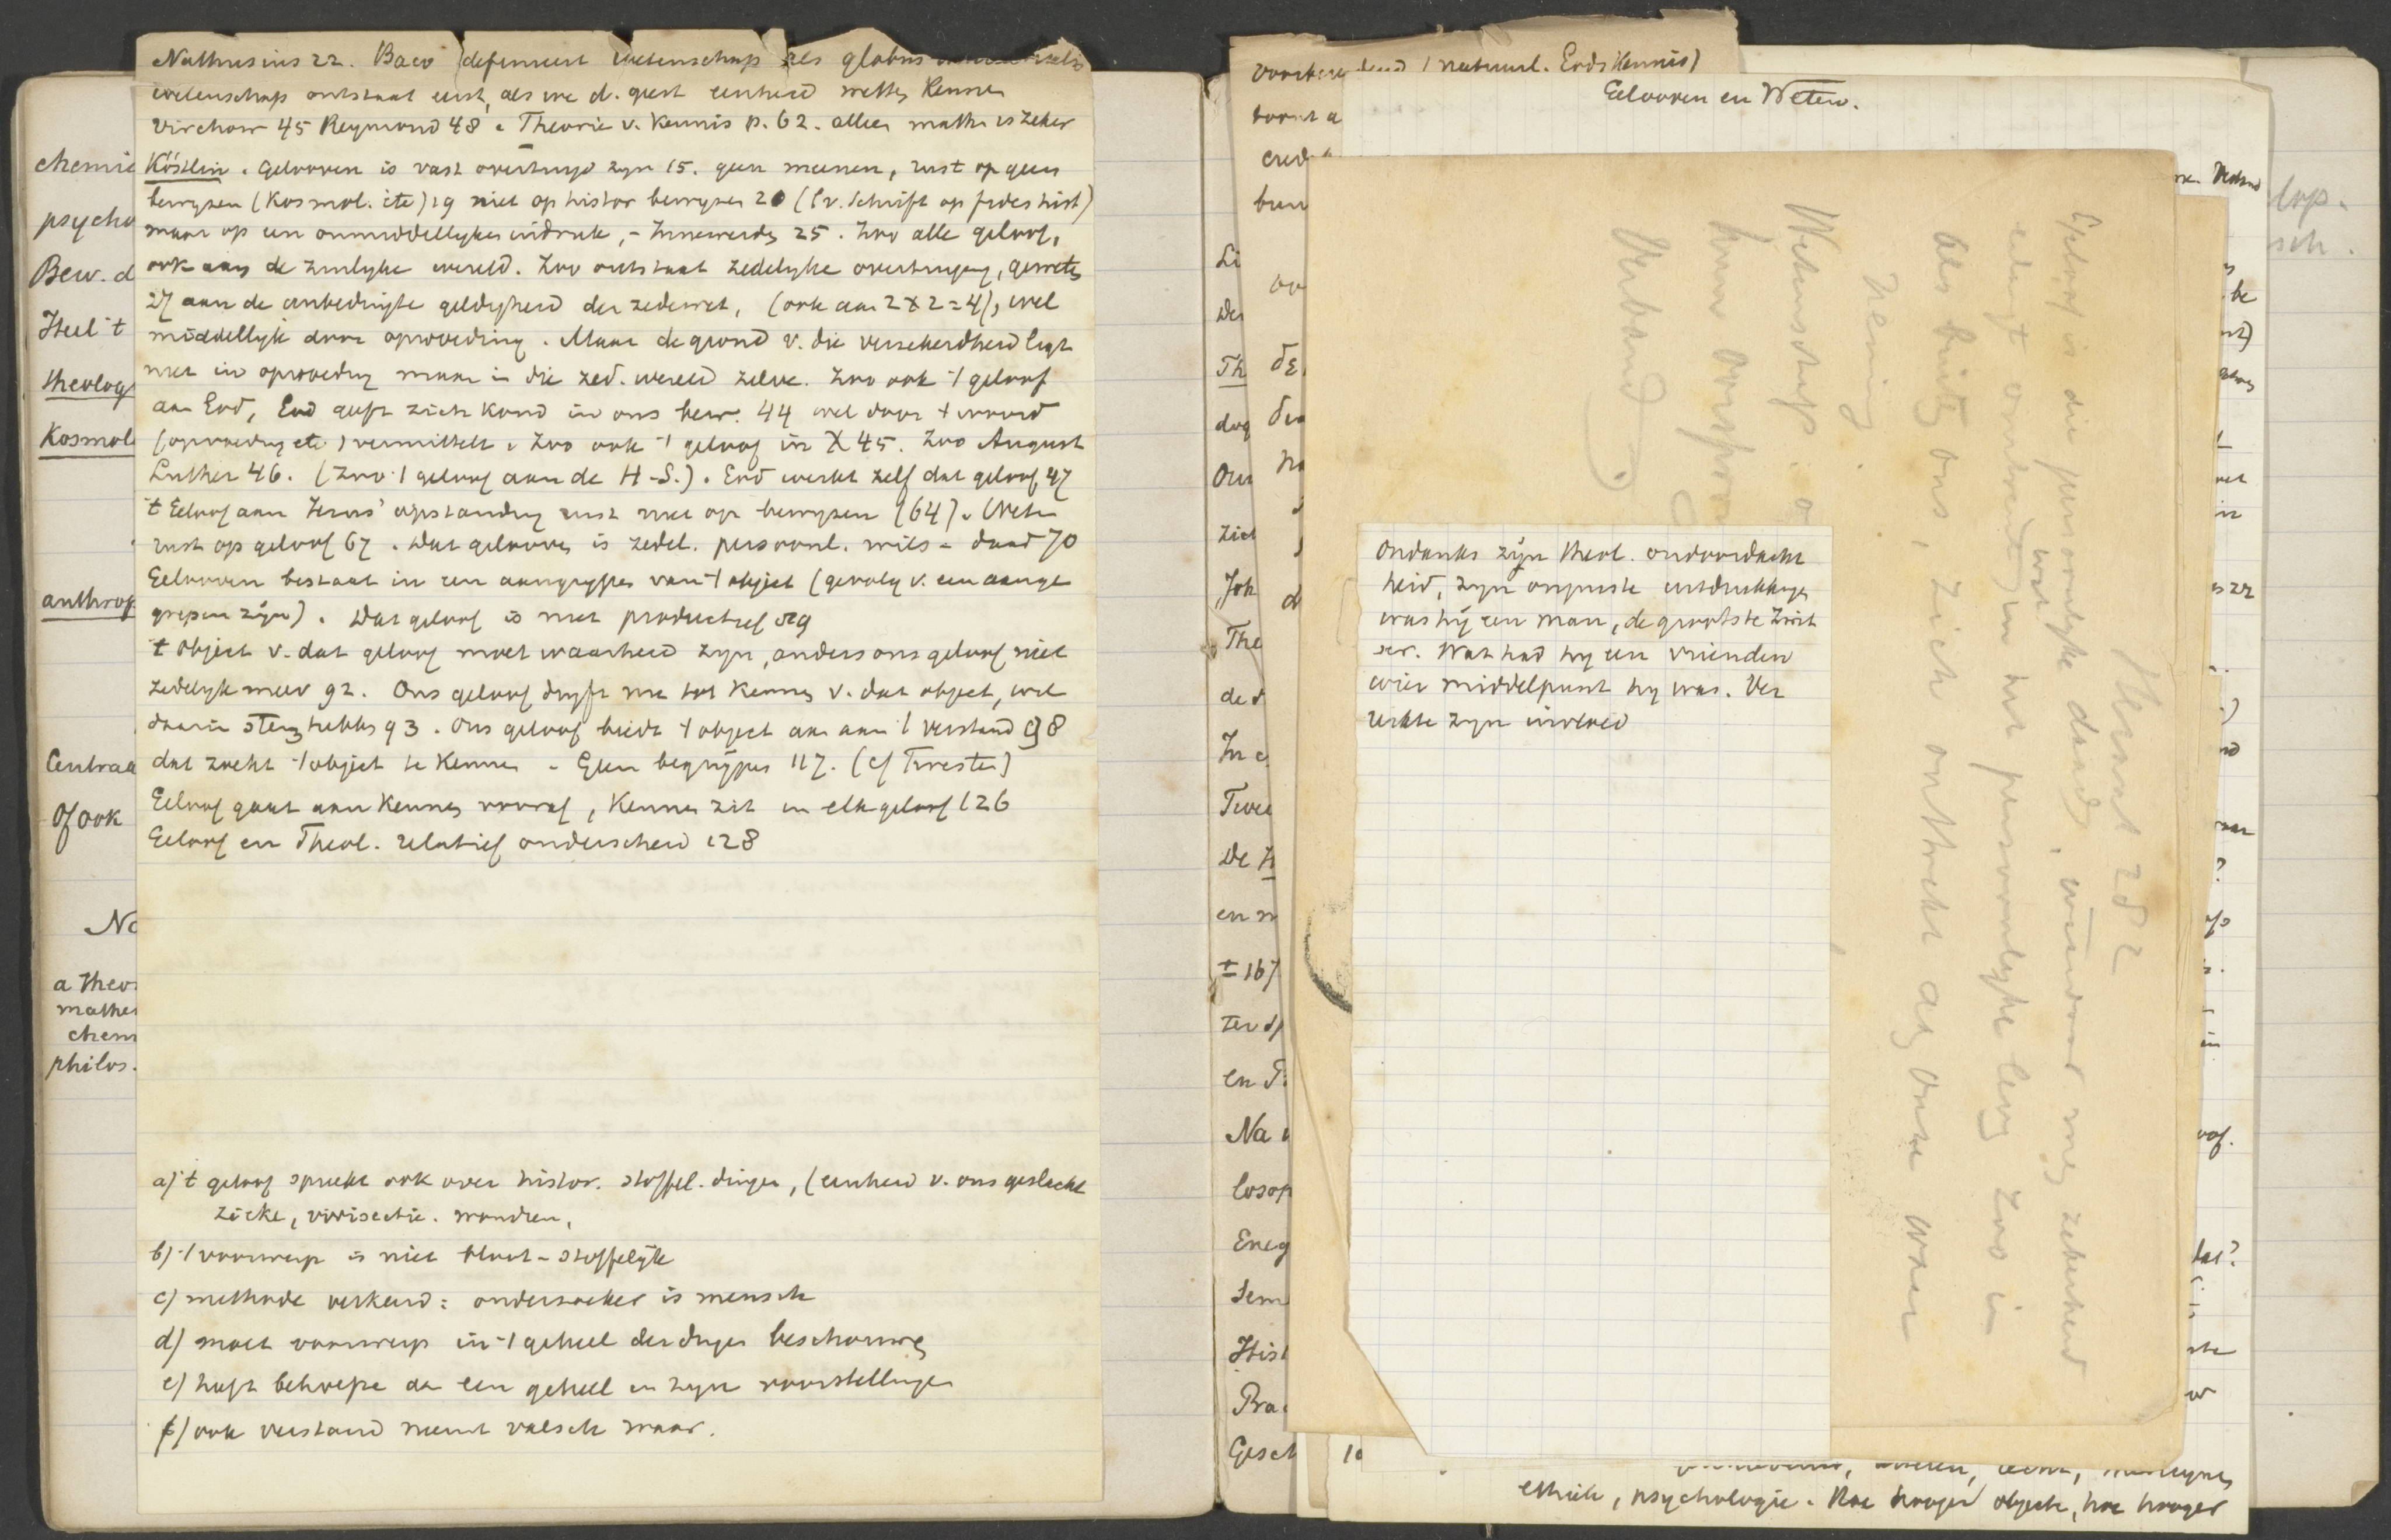 Nathusius 22. Baco definieert wetenschap als globus
wetenschap ontstaat eerst, als we d. geest eenheid wetten kennen
Virchow 45 Reymond 48. Theorie v. Kennis p. 62. alleen math. is zeker
Köstlin. Gelooven is vast overtuigd zyn 15. geen meenen, rust op geen
bewyzen (Kosmol. etc) 19 niet op histor bewyzen 20 (v. Schrift op fides hist)
maar op een onmiddellyken indruk, - Innewerden 25. Zoo alle geloof,
ook aan de zinlyke wereld. Zoo ontstaat zedelyke overtuiging, geweten
27 aan de onbedingte geldigheid der zedewet, (ook aan 2 x 2 = 4), wel
middellyk door opvoeding. Maar de grond v. die verzekerdheid ligt
niet in opvoeding maar in die zed. wereld zelve. Zoo ook 't geloof
aan God, God geeft zich kond in ons bew. 44 wel door 't woord
(opvoeding etc) vermittelt. Zoo ook 't geloof in X 45. Zoo August
Luther 46. (Zoo 't geloof aan de H.S.). God werkt zelf dat geloof 47
't Geloof aan Jezus' opstanding rust niet op bewyzen (64). Weten
rust op geloof 67. Dat gelooven is zedel. persoonl. wils-daad 70
Gelooven bestaat in een aangrypen van 't object (gevolg v. een aange
grepen zijn). Dat geloof is niet productief 89
't Object v. dat geloof moet waarheid zyn, anders ons geloof niet
zedelyk meer 92. Ons geloof dryft me tot kennen v. dat object, wel
daarin 93. Ons geloof biedt 't object aan aan 't verstand 98
dat zoekt 't object te kennen. Geen begrijpen 117. (cf Twesten)
Geloof gaat aan kennen vooraf, kennen zit in elk geloof 126
Geloof en Theol. relatief onderscheid 128
a) 't geloof spreekt ook over histor. stoffel. dingen, (eenheid v. ons geslacht
ziekte, vivisectie. wonderen,
b) 't voorwerp is niet bloot-stoffelijk
c) methode verkeerd: onderzoeker is mensch
d) moet voorwerp in 't geheel der dingen beschouwen
e) heeft behoefte aan een geheel in zyn voorstellingen
f) ook verstand neemt valsch waar.
chemie
psycho
Bew. d
Heel 't
theolog
Kosmol
anthrop
Centraa
Of ook
No
a Theo
mathe
chem
philos.
voorbereidend (natuurl. Godskennis)
Gelooven en Weten.
Li
Der
Th
dog
Our
Ziet
Joh
The
de d
In c
Twee
De H
en n
± 167
ter d
en T
Na
losop
Eneg
Sem
Hist
Pra
Gesch
Ondanks zijn theol. ondoordacht
heid, zyn onjuiste uitdrukkingen
was hij een man, de grootste Zwit
ser. Wat had hij een vrienden
wier middelpunt hy was. Ver
zekte zyn invloed
282
Geloof is die persoonlyke daad, waardoor wy zekerheid
omtrent wat in het persoonlyke leven zoo in
als buiten ons, zich onttrekt aan onze waar
neming
Wetenschap:
hun oorspro
Verband
ethiek, psychologie. Hoe hooger objecte, hoe hooger